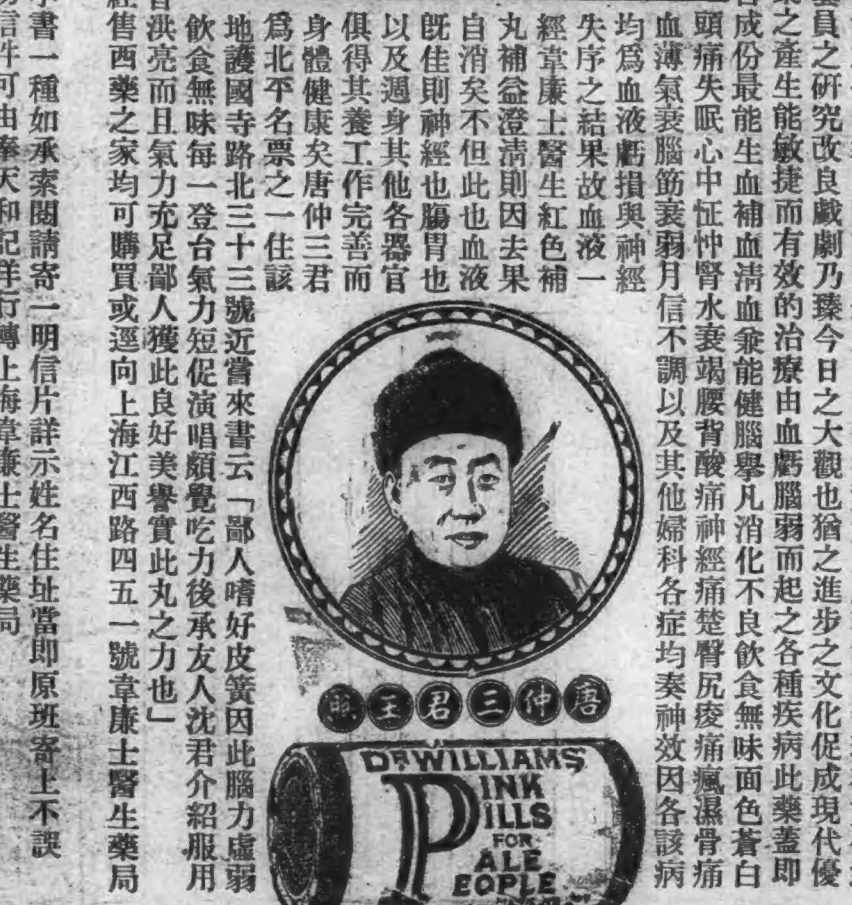 員之研究改良戲劇乃臻今日之大觀也猶之進步之文化促成現代優
之產生能敏捷而有效的治療由血虧腦弱而起之各種疾病此藥蓋即
成份最能生血補血清血兼能健腦舉凡消化不良飲食無味面色蒼白
頭痛失眠心中怔忡腎水衰竭腰背酸痛神經痛楚臀尻痠痛瘋濕骨痛
血薄氣衰腦筋衰弱月信不調以及其他婦科各症均奏神效因各該病
均爲血液虧損與神經
失序之結果故血液一
經韋廉士醫生紅色補
丸補益澄清則因去果
自消矣不但此也血液
旣佳則神經也腸胃也
以及週身其他各器官
俱得其養工作完善而
身體健康矣唐仲三君
爲北平名票之一住該
地護國寺路北三十三號近嘗來書云「鄙人嗜好皮簧因此腦力虛弱
飲食無味每一登台氣力短促演唱頗覺吃力後承友人沈君介紹服用
洪亮而且氣力充足鄙人獲此良好美譽實此丸之力也」
售西藥之家均可購買或逕向上海江西路四五一號韋廉士醫生藥局
書一種如承索閱請寄一明信片詳示姓名住址當即原班寄上不誤
信件可由奉天和記洋行轉上海韋廉士醫生藥局
唐仲三君玉照
DR WILLIAMS'
PINK
PILLS
FOR
PALE
PEOPLE